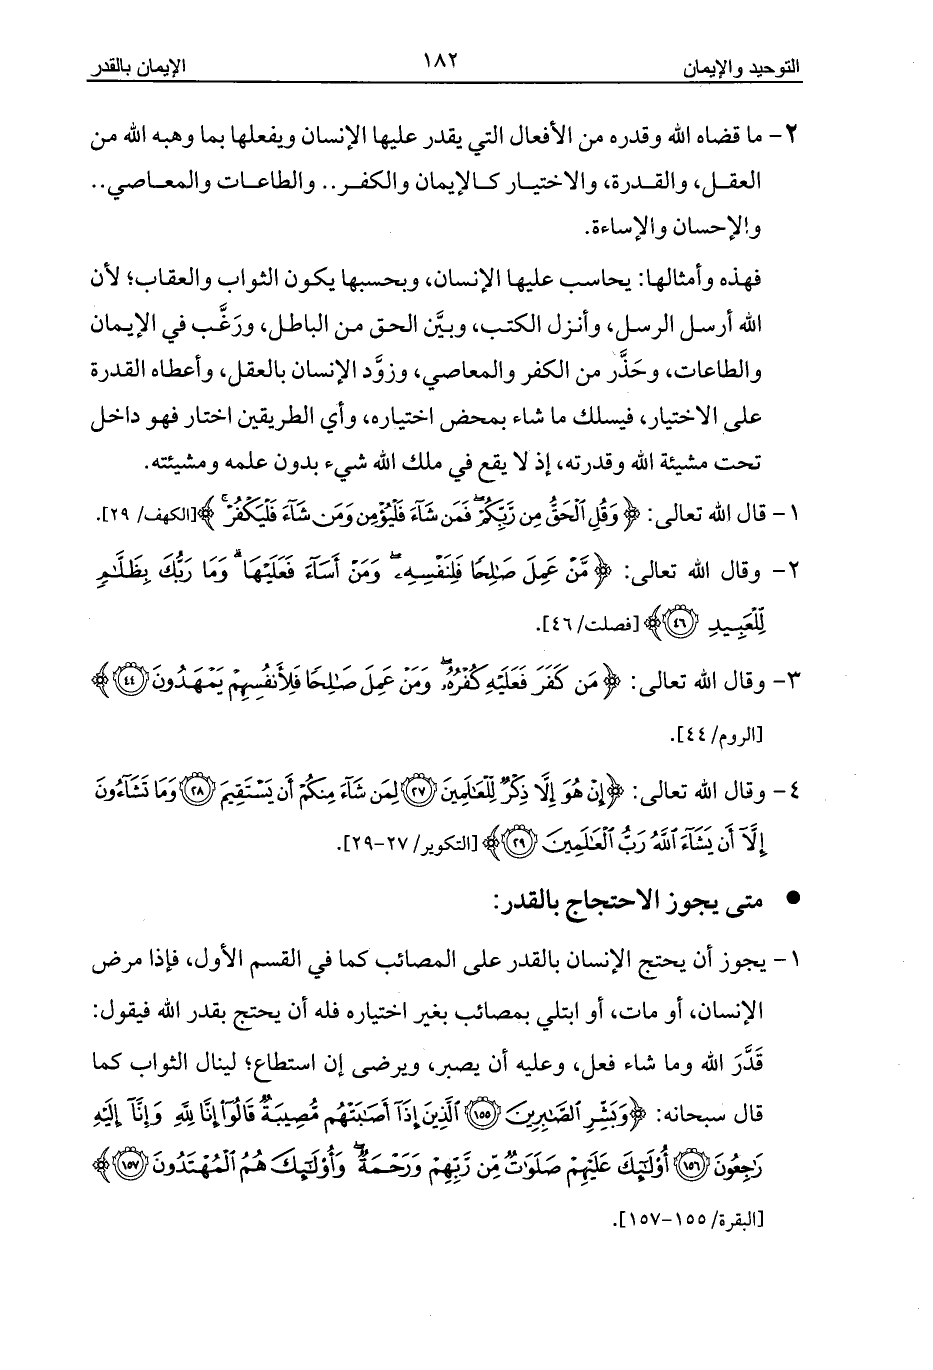 التوحيد والإيمان ١٨٢ الإيمان بالقدر
٢- ما قضاه الله وقدره من الأفعال التي يقدر عليها الإنسان ويفعلها بما وهبه الله من
العقل، والقدرة، والاختيار كالإيمان والكفر.. والطاعات والمعاصي..
والإحسان والإساءة.
فهذه وأمثالها: يحاسب عليها الإنسان، وبحسبها يكون الثواب والعقاب؛ لأن
الله أرسل الرسل، وأنزل الكتب، وبيَّن الحق من الباطل، ورَغَّب في الإيمان
والطاعات، وحَذَّر من الكفر والمعاصي، وزوَّد الإنسان بالعقل، وأعطاه القدرة
على الاختيار، فيسلك ما شاء بمحض اختياره، وأي الطريقين اختار فهو داخل
تحت مشيئة الله وقدرته، إذ لا يقع في ملك الله شيء بدون علمه ومشيئته.
١- قال الله تعالى: ﴿ وَقُلِ ٱلْحَقُّ مِن رَّبِّكُمْ ۖ فَمَن شَآءَ فَلْيُؤْمِن وَمَن شَآءَ فَلْيَكْفُرْ ۚ ﴾ [الكهف/ ٢٩].
٢- وقال الله تعالى: ﴿ مَّنْ عَمِلَ صَٰلِحًا فَلِنَفْسِهِۦ ۖ وَمَنْ أَسَآءَ فَعَلَيْهَا ۗ وَمَا رَبُّكَ بِظَلَّٰمٍ
لِّلْعَبِيدِ ٤٦ ﴾ [فصلت/ ٤٦].
٣- وقال الله تعالى: ﴿ مَن كَفَرَ فَعَلَيْهِ كُفْرُهُۥ ۖ وَمَنْ عَمِلَ صَٰلِحًا فَلِأَنفُسِهِمْ يَمْهَدُونَ ٤٤ ﴾
[الروم/ ٤٤].
٤- وقال الله تعالى: ﴿ إِنْ هُوَ إِلَّا ذِكْرٌ لِّلْعَٰلَمِينَ ٢٧ لِمَن شَآءَ مِنكُمْ أَن يَسْتَقِيمَ ٢٨ وَمَا تَشَآءُونَ
إِلَّآ أَن يَشَآءَ ٱللَّهُ رَبُّ ٱلْعَٰلَمِينَ ٢٩ ﴾ [التكوير/ ٢٧-٢٩].
● متى يجوز الاحتجاج بالقدر:
١- يجوز أن يحتج الإنسان بالقدر على المصائب كما في القسم الأول، فإذا مرض
الإنسان، أو مات، أو ابتلي بمصائب بغير اختياره فله أن يحتج بقدر الله فيقول:
قَدَّرَ الله وما شاء فعل، وعليه أن يصبر، ويرضى إن استطاع؛ لينال الثواب كما
قال سبحانه: ﴿ وَبَشِّرِ ٱلصَّٰبِرِينَ ١٥٥ ٱلَّذِينَ إِذَآ أَصَٰبَتْهُم مُّصِيبَةٌ قَالُوٓا۟ إِنَّا لِلَّهِ وَإِنَّآ إِلَيْهِ
رَٰجِعُونَ ١٥٦ أُو۟لَٰٓئِكَ عَلَيْهِمْ صَلَوَٰتٌ مِّن رَّبِّهِمْ وَرَحْمَةٌ ۖ وَأُو۟لَٰٓئِكَ هُمُ ٱلْمُهْتَدُونَ ١٥٧ ﴾
[البقرة/ ١٥٥-١٥٧].